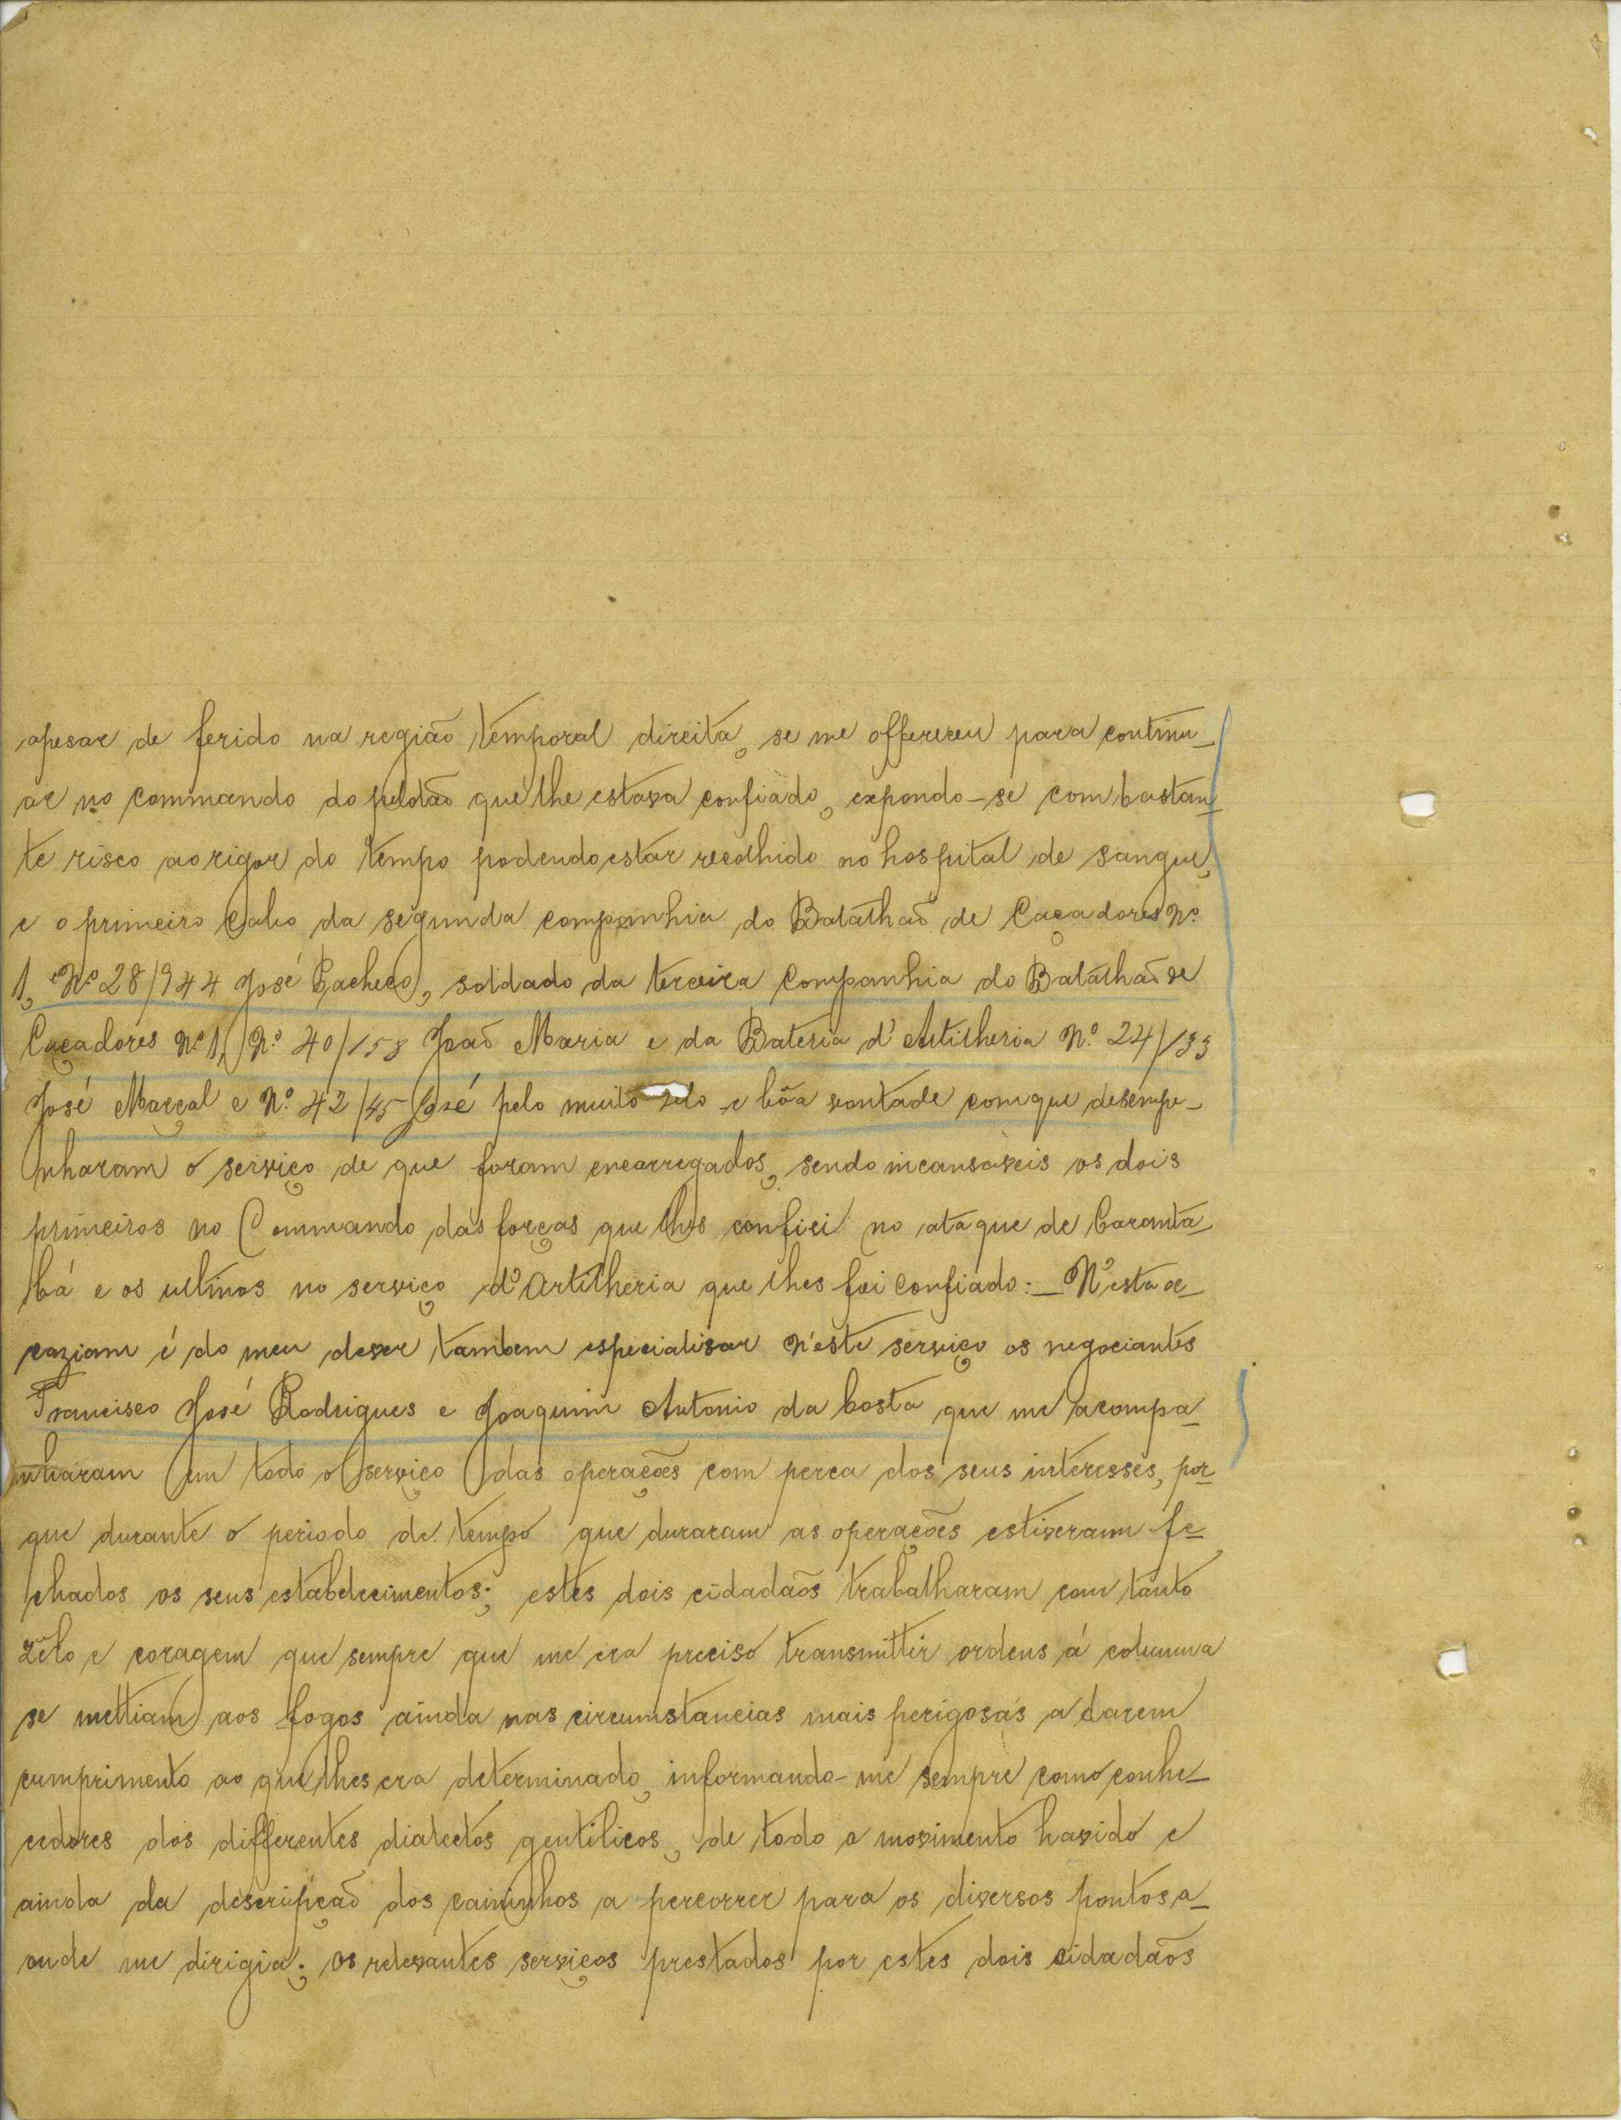 apesar de ferido na região temporal direita, se me offereceu para continu-
ar no commando do pelotão que lhe estava confiado, expondo-se com bastan-
te risco ao rigor do tempo podendo estar recolhido no hospital de sangue,
e o primeiro Cabo da segunda companhia do Batalhaõ de Caçadores Nº
1, Nº 28/944 José Pacheco, soldado da terceira Companhia do Batalhaõ de
Caçadores Nº 1, Nº 40/158 Joaõ Maria e da Bateria d'Artilheria Nº 24/133
José Marçal e Nº 42/45 José pelo muito zelo e bôa vontade com que desempe-
nharam o serviço de que foram encarregados, sendo incansaveis os dois
primeiros no Commando das forças que lhes confiei no ataque de Caranta-
bá e os ultimos no serviço d'Artilheria que lhes foi confiado:_ N'esta oc-
caziam é do meu dever tambem especialisar n'este serviço os negociantes
Francisco José Rodrigues e Joaquim Antonio da Costa que me acompa-
nharam em todo o serviço das operações com perca dos seus interesses, por-
que durante o periodo de tempo que duraram as operações estiveram fe-
chados os seus estabelecimentos; estes dois cidadaõs trabalharam com tanto
zêlo e coragem que sempre que me era preciso transmittir ordens á columna
se mettiam aos fogos ainda nas circumstancias mais perigosas a darem
cumprimento ao que lhes era determinado, informando-me sempre como conhe-
cedores dos differentes dialectos gentilicos, de todo o movimento havido e
ainda da descripçaõ dos caminhos a percorrer para os diversos pontos a-
onde me dirigia; os relevantes serviços prestados por estes dois cidadaõs